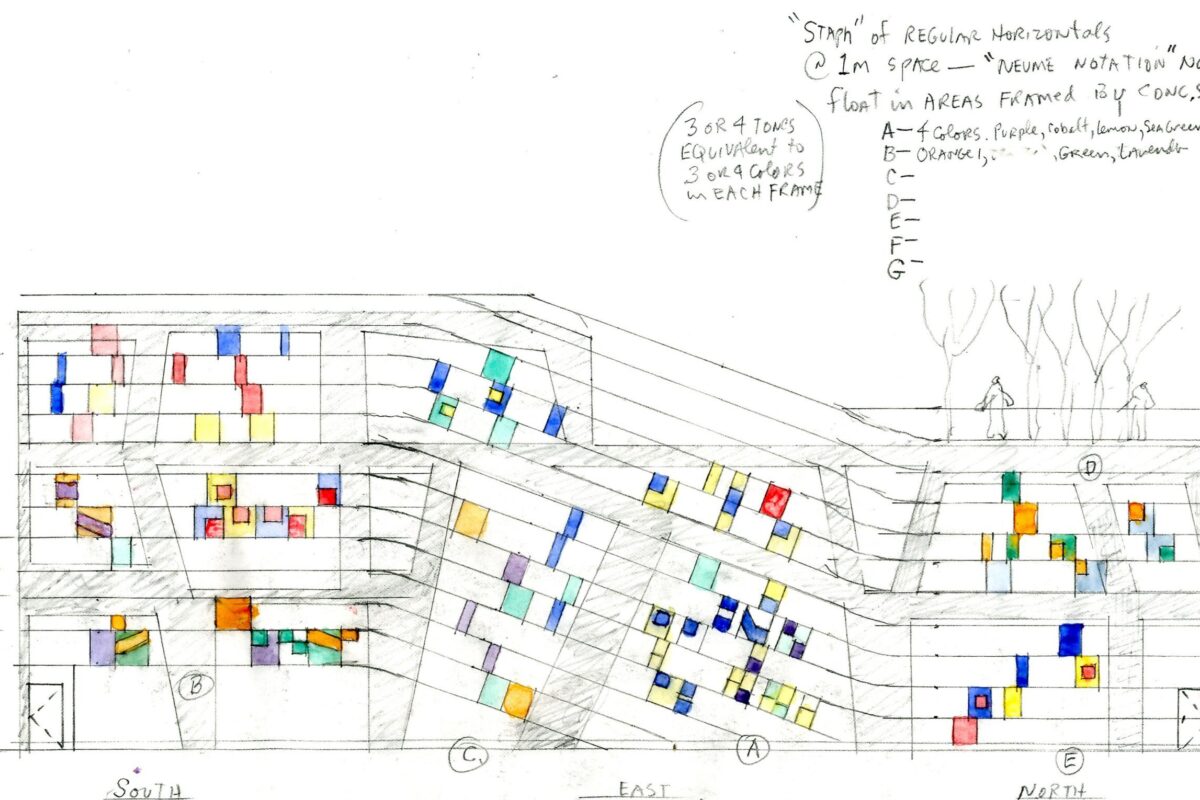 "STAPH" of REGULAR HORIZONTALS
@ 1m SPACE — "NEUME NOTATION" NO
float in AREAS FRAMED BY CONC. S
(3 OR 4 TONES
EQUIVALENT to
3 OR 4 COLORS
in EACH FRAME)
A— 4 COLORS. Purple, cobalt, lemon, Sea Green
B— ORANGE 1, , Green, Lavender
C—
D—
E—
F—
G—
D
B
C
A
E
SOUTH
EAST
NORTH